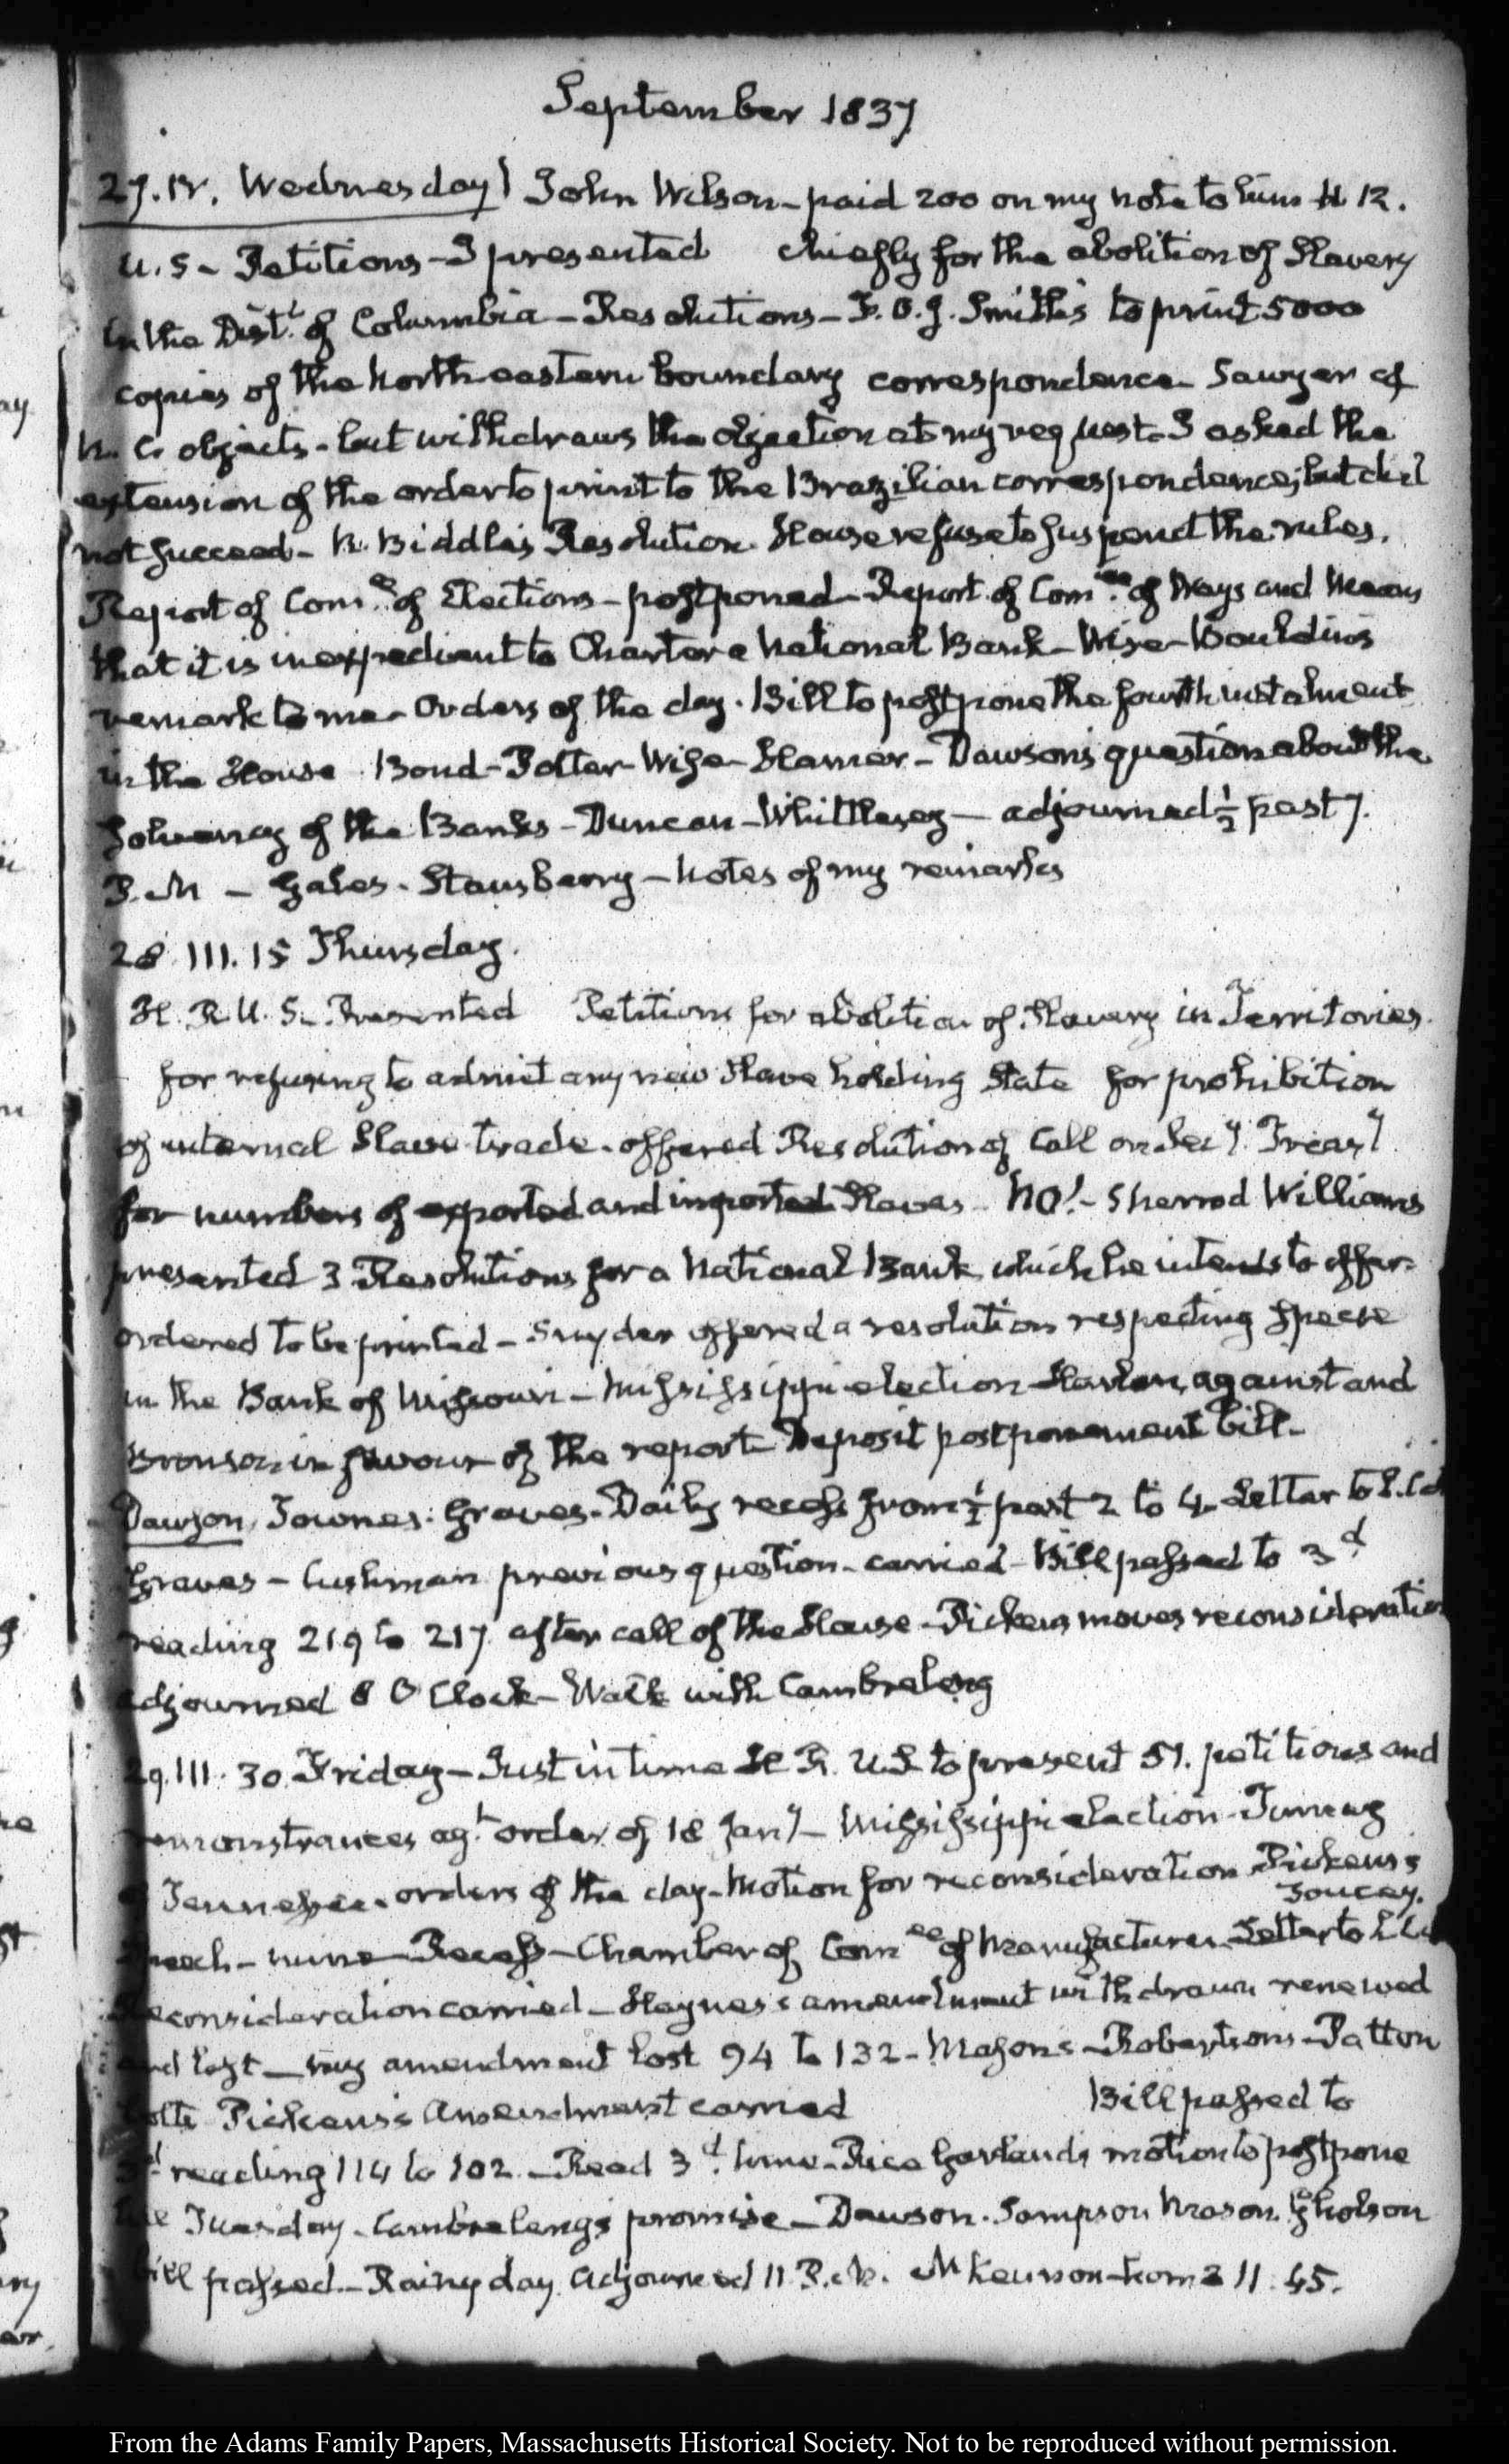 September 1837
27. IV. Wednesday John Wilson - paid 200 on my note to him H R.
U. S - Petitions - I presented chiefly for the abolition of Slavery
in the Dist.t of Columbia - Resolutions - F. O. J. Smith's to print 5000
copies of the North eastern boundary correspondence - Sawyer of
N. C. objects - but withdraws the objection at my request - I asked the
extension of the order to print to the Brazilian correspondence; but did
not succeed - R. Biddle's Resolution. House refuse to suspend the rules.
Report of Com.ee of Elections - postponed - Report of Com.ee of Ways and Means
that it is inexpedient to Charter a National Bank - Wise - Bouldin's
remark to me - Orders of the day. Bill to postpone the fourth instalment
in the House Bond - Potter - Wise - Hamer - Dawson's question about the
solvency of the Banks - Duncan - Whittlesey - adjourned ½ past 7.
P. M - Gales. Stansberry - Notes of my remarks
28. III. 15 Thursday.
H. R. U. S. - Presented Petitions for abolition of Slavery in Territories.
for refusing to admit any new Slave holding State for prohibition
of internal Slave trade. offered Resolution of Call on Sec.y Treas.y
for numbers of exported and imported Slaves - No! - Sherrod Williams
presented 3 Resolutions for a National Bank which he intends to offer.
ordered to be printed - Snyder offered a resolution respecting Specie
in the Bank of Missouri - Mississippi election Harlan, against and
Bronson in favour of the report - Deposit postponement bill -
Dawson, Townes. Graves. Daily recess from ½ past 2 to 4. Letter to
Graves - Cushman previous question - carried - Bill passed to 3.d
reading 219 to 217 after call of the House - Pickens moves reconsideration
adjourned 8 O'Clock - Walk with Cambreleng
29. III. 30 Friday - Just in time H R. U.S. to present 51. petitions and
remonstrances ag.t order of 18 Jan.y - Mississippi election - Turney
of Tennessee. orders of the day - Motion for reconsideration Pickens's
Toucey.
Speech - mine - Recess - Chamber of Com.ee of Manufactures - Letter to
Reconsideration carried - Haynes's amendment withdrawn renewed
and lost - my amendment lost 94 to 132 - Mason's - Robertson's - Patton
Pickens's Amendment carried Bill passed to
3.d reading 114 to 102 - Read 3.d time - Rice Garland's motion to postpone
till Tuesday. Cambreleng's promise - Dawson. Sampson Mason. Gholson
bill passed - Rainy day adjourned 11 P. M. home 11. 45.
From the Adams Family Papers, Massachusetts Historical Society. Not to be reproduced without permission.